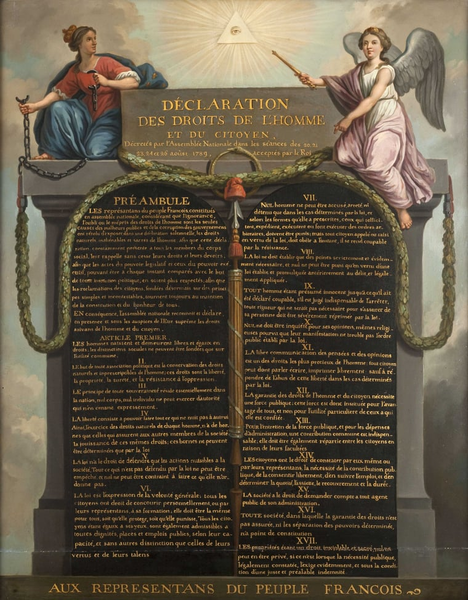 DÉCLARATION
DES DROITS DE L'HOMME
ET DU CITOYEN,
Décrétés par l'Assemblée Nationale dans les séances des 20, 21
23, 24 et 26 août 1789, acceptés par le Roi
PRÉAMBULE
LES représentans du peuple François, constitués
en assemblée nationale, considérant que l'ignorance,
l'oubli ou le mépris des droits de l'homme sont les seules
causes des malheurs publics et de la corruption des gouvernemens
ont résolu d'exposer dans une déclaration solemnelle, les droits
naturels, inaliénables et sacrés de l'homme, afin que cette décla
ration, constamment présente à tous les membres du corps
social, leur rappelle sans cesse leurs droits et leurs devoirs,
afin que les actes du pouvoir législatif et ceux du pouvoir exé
cutif, pouvant être à chaque instant comparés avec le but
de toute institution politique, en soient plus respectés; afin que
les réclamations des citoyens, fondées désormais sur des prin
cipes simples et incontestables, tournent toujours au maintien
de la constitution et du bonheur de tous.
EN conséquence, l'assemblée nationale reconnoît et déclare,
en présence et sous les auspices de l'Etre suprême les droits
suivans de l'homme et du citoyen,
ARTICLE PREMIER
LES hommes naissent et demeurent libres et égaux en
droits, les distinctions sociales ne peuvent être fondées que sur
l'utilité commune.
II.
LE but de toute association politique est la conservation des droits
naturels et imprescriptibles de l'homme; ces droits sont la liberté
la propriété, la sûreté, et la résistance à l'oppression.
III
LE principe de toute souveraineté réside essentiellement dans
la nation, nul corps, nul individu ne peut exercer d'autorité
qui n'en émane expressément.
IV
LA liberté consiste à pouvoir faire tout ce qui ne nuit pas à autrui
Ainsi, l'exercice des droits naturels de chaque homme, n'a de bor
nes que celles qui assurent aux autres membres de la société
la jouissance de ces mêmes droits; ces bornes ne peuvent
être déterminées que par la loi
V
LA loi n'a le droit de défendre que les actions nuisibles à la
société. Tout ce qui n'est pas défendu par la loi ne peut être
empêché, et nul ne peut être contraint à faire ce qu'elle n'or
donne pas.
VI.
LA loi est l'expression de la volonté générale; tous les
citoyens ont droit de concourir personnellement, ou par
leurs représentans, à sa formation; elle doit être la même
pour tous, soit qu'elle protege, soit qu'elle punisse. Tous les cito
yens étant égaux à ses yeux, sont également admissibles à
toutes dignités, places et emplois publics, selon leur ca
pacité, et sans autres distinction que celles de leurs
vertus et de leurs talens
VII.
NUL homme ne peut être accusé, arrêté ni
détenu que dans les cas déterminés par la loi, et
selon les formes qu'elle a prescrites, ceux qui sollici
tent, expédient, exécutent ou font exécuter des ordres ar
bitraires, doivent être punis; mais tout citoyen appelé ou saisi
en vertu de la loi, doit obéir à l'instant, il se rend coupable
par la résistance.
VIII.
LA loi ne doit établir que des peines strictement et évidem
ment nécessaires, et nul ne peut être puni qu'en vertu d'une
loi établie et promulguée antérieurement au délit, et légale
ment appliquée.
IX.
TOUT homme étant présumé innocent jusqu'à ce qu'il ait
été déclaré coupable, s'il est jugé indispensable de l'arrêter,
toute rigueur qui ne seroit pas nécessaire pour s'assurer de
sa personne doit être sévèrement réprimée par la loi.
X.
NUL ne doit être inquiété pour ses opinions, mêmes religi
euses pourvu que leur manifestation ne trouble pas l'ordre
public établi par la loi.
XI.
LA libre communication des pensées et des opinions
est un des droits les plus précieux de l'homme: tout citoyen
peut donc parler, écrire, imprimer librement sauf à ré
pondre de l'abus de cette liberté dans les cas déterminés
par la loi.
XII.
LA garantie des droits de l'homme et du citoyen nécessite
une force publique; cette force est donc instituée pour l'avan
tage de tous, et non pour l'utilité particulière de ceux à qui
elle est confiée.
XIII.
POUR l'entretien de la force publique, et pour les dépenses
d'administration, une contribution commune est indispen
sable; elle doit être également répartie entre les citoyens en
raison de leurs facultés
XIV.
LES citoyens ont le droit de constater par eux même ou
par leurs représentans, la nécessité de la contribution publi
que, de la consentir librement, d'en suivre l'emploi, et d'en
déterminer la quotité, l'assiette, le recouvrement et la durée.
XV.
LA société a le droit de demander compte à tout agent
public de son administration.
XVI.
TOUTE société, dans laquelle la garantie des droits n'est
pas assurée, ni la séparation des pouvoirs déterminée,
n'a point de constitution
XVII.
LES propriétés étant un droit inviolable et sacré, nul ne
peut en être privé, si ce n'est lorsque la nécessité publique,
légalement constatée, l'exige évidemment, et sous la condi
tion d'une juste et préalable indemnité
AUX REPRESENTANS DU PEUPLE FRANCOIS